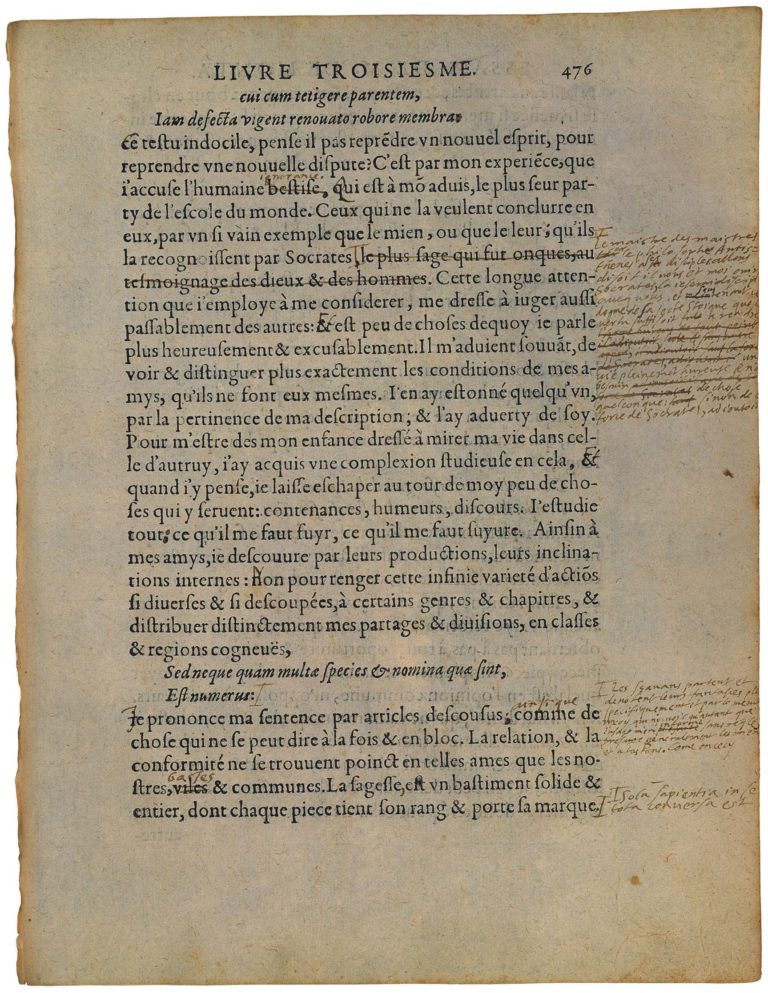 LIVRE TROISIESME. 476
cui cum tetigere parentem,
Iam defecta vigent renouato robore membra
Ce testu indocile, pense il pas reprēdre vn nouuel esprit, pour
reprendre vne nouuelle dispute? C'est par mon experiēce, que
ignorance
i'accuse l'humaine bestise, Qui est à mō aduis, le plus seur par-
ty de l'escole du monde. Ceux qui ne la veulent conclurre en
eux, par vn si vain exemple que le mien, ou que le leur; qu'ils
la recognoissent par Socrates, le plus sage qui fut onques, au
tesmoignage des dieux & des hommes. Cette longue atten-
tion que i'employe à me considerer, me dresse à iuger aussi
passablement des autres: & est peu de choses dequoy ie parle
plus heureusement & excusablement. Il m'aduient souuāt, de
voir & distinguer plus exactement les conditions de mes a-
mys, qu'ils ne font eux mesmes. I'en ay estonné quelqu'vn,
par la pertinence de ma description; & l'ay aduerty de soy.
Pour m'estre des mon enfance dressé à mirer ma vie dans cel-
le d'autruy, i'ay acquis vne complexion studieuse en cela, &
quand i'y pense, ie laisse eschaper au tour de moy peu de cho-
ses qui y seruent: contenances, humeurs, discours. I'estudie
tout: ce qu'il me faut fuyr, ce qu'il me faut suyure. Ainsin à
mes amys, ie descouure par leurs productions, leurs inclina-
tions internes: Non pour renger cette infinie varieté d'actiōs
si diuerses & si descoupées, à certains genres & chapitres, &
distribuer distinctement mes partages & diuisions, en classes
& regions cogneuës,
Sed neque quam multæ species & nomina quæ sint,
Est numerus:
Ie prononce ma sentence par articles descousus, comme de
chose qui ne se peut dire à la fois & en bloc. La relation, & la
conformité ne se trouuent poinct en telles ames que les no-
basses
stres, viles & communes. La sagesse, est vn bastiment solide &
entier, dont chaque piece tient son rang & porte sa marque.
le maistre des maistres
Les sçauans partent et
denotent leurs fantasies plus
specifiquement et par le menu
Sola sapientia in se
tota conuersa est